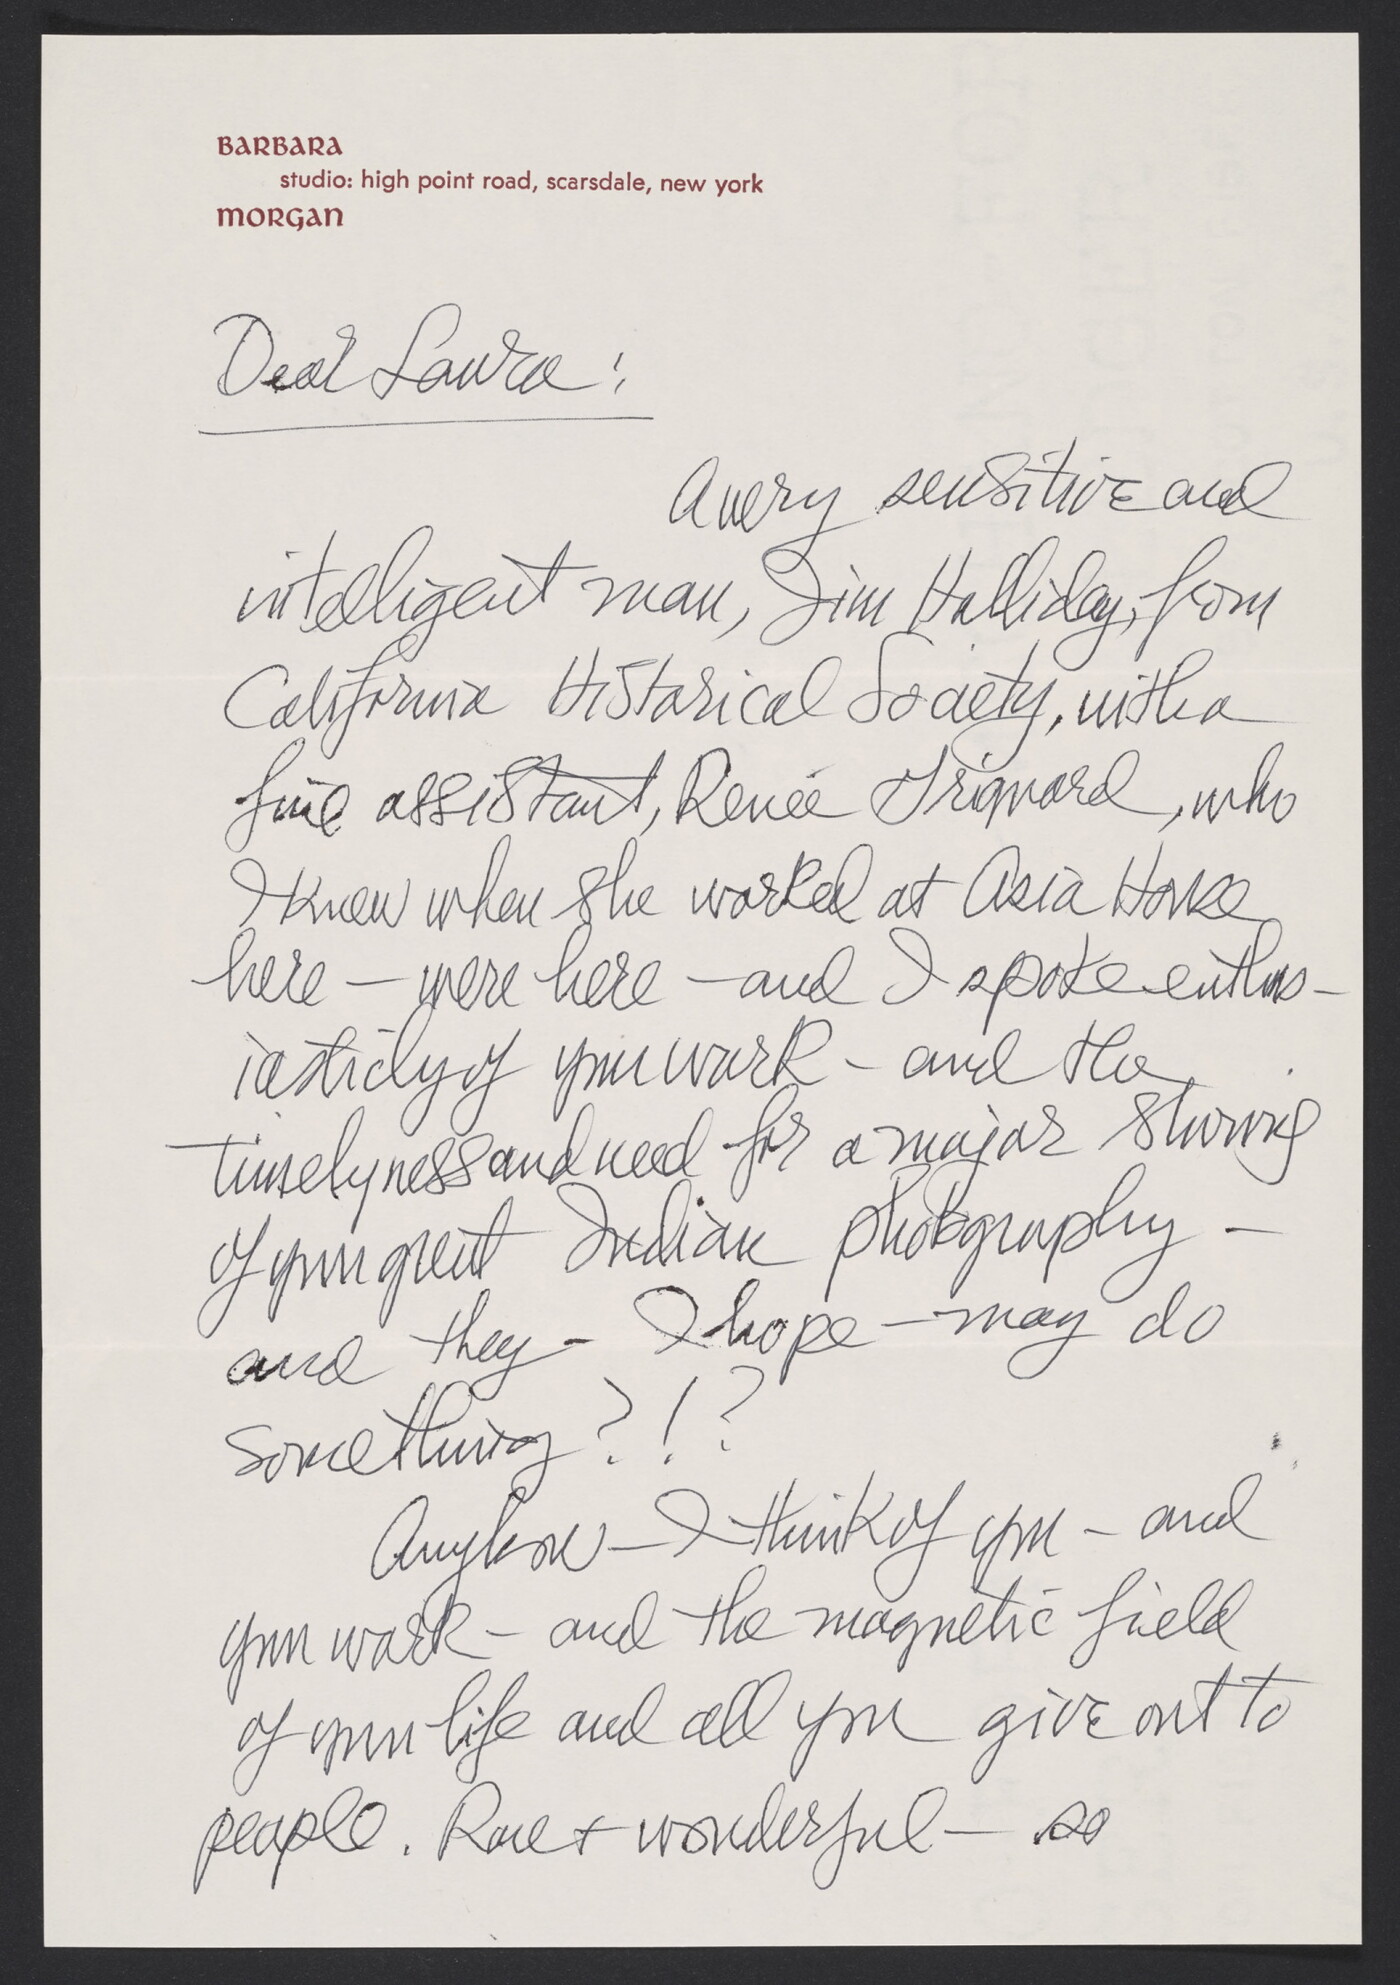 BARBARA
studio: high point road, scarsdale, new york
MORGAN
Dear Laura:
A very sensitive and
intelligent man, Jim Holliday, from
California Historical Society, with a
fine assistant, Renée
, who
I knew when she worked at Asia House
here — were here — and I spoke enthus-
iasticly of your work — and the
timelyness and need for a major showing
of your great Indian photography —
and they — I hope — may do
something ?!?
Anyhow — I think of you — and
your work — and the magnetic field
of your life and all you give out to
people. Rare + wonderful — so